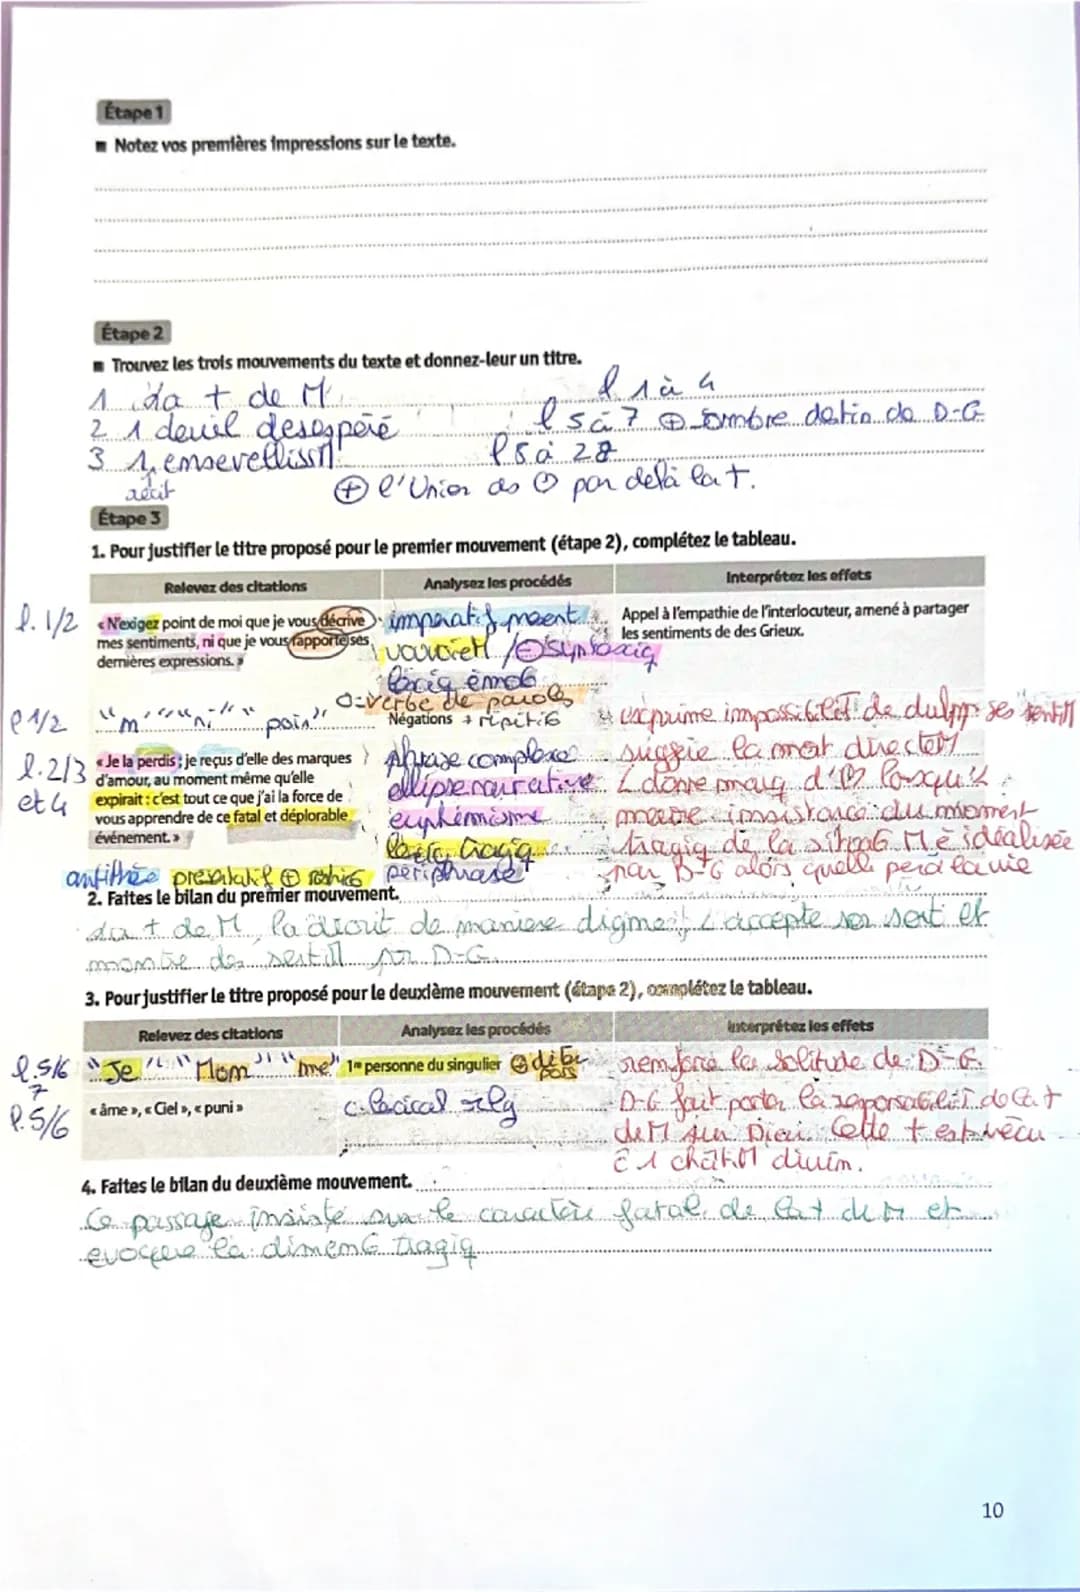 Étape 1
■ Notez vos premières impressions sur le texte.
Étape 2
■ Trouvez les trois mouvements du texte et donnez-leur un titre.
1 da t de M. l 1 à 4
2 1 deuil desespéré l 5 à 7 ⊕ sombre destin de D-G
3 1 l 8 à 28
récit ⊕ l'Union des par delà la t.
Étape 3
1. Pour justifier le titre proposé pour le premier mouvement (étape 2), complétez le tableau.
Relevez des citations Analysez les procédés Interprétez les effets
l. 1/2 « N'exigez point de moi que je vous décrive mes sentiments, ni que je vous rapporte ses dernières expressions. »
imperatif
/⊖ syntaxiq
verbe de paroles
Appel à l'empathie de l'interlocuteur, amené à partager les sentiments de des Grieux.
l 1/2 "ni" "poin" Négations + exprime de ses
l. 2/3 et 4 « Je la perdis ; je reçus d'elle des marques d'amour, au moment même qu'elle expirait : c'est tout ce que j'ai la force de vous apprendre de ce fatal et déplorable événement. »
phrase complexe
ellipse narrative
euphémisme
périphrase
antithèse
la mort
du moment
tragiq de la M idéalisée
par D-G alors quelle perd la vie
2. Faites le bilan du premier mouvement.
t de M, la décrit de maniere accepte son sort et
montre des par D-G.
3. Pour justifier le titre proposé pour le deuxième mouvement (étape 2), complétez le tableau.
Relevez des citations Analysez les procédés Interprétez les effets
l. 5/6 7 "Je" "Mom" "me" 1re personne du singulier ⊕ renforce la solitude de D-G.
l. 5/6 « âme », « Ciel », « puni » c. lexical relg
D-G fait porter la de la t
de M sur Dieu. Cette t est vécu
1 divin.
4. Faites le bilan du deuxième mouvement.
Ce passage insiste sur le caractère fatal de la t de M et
la tragiq
10